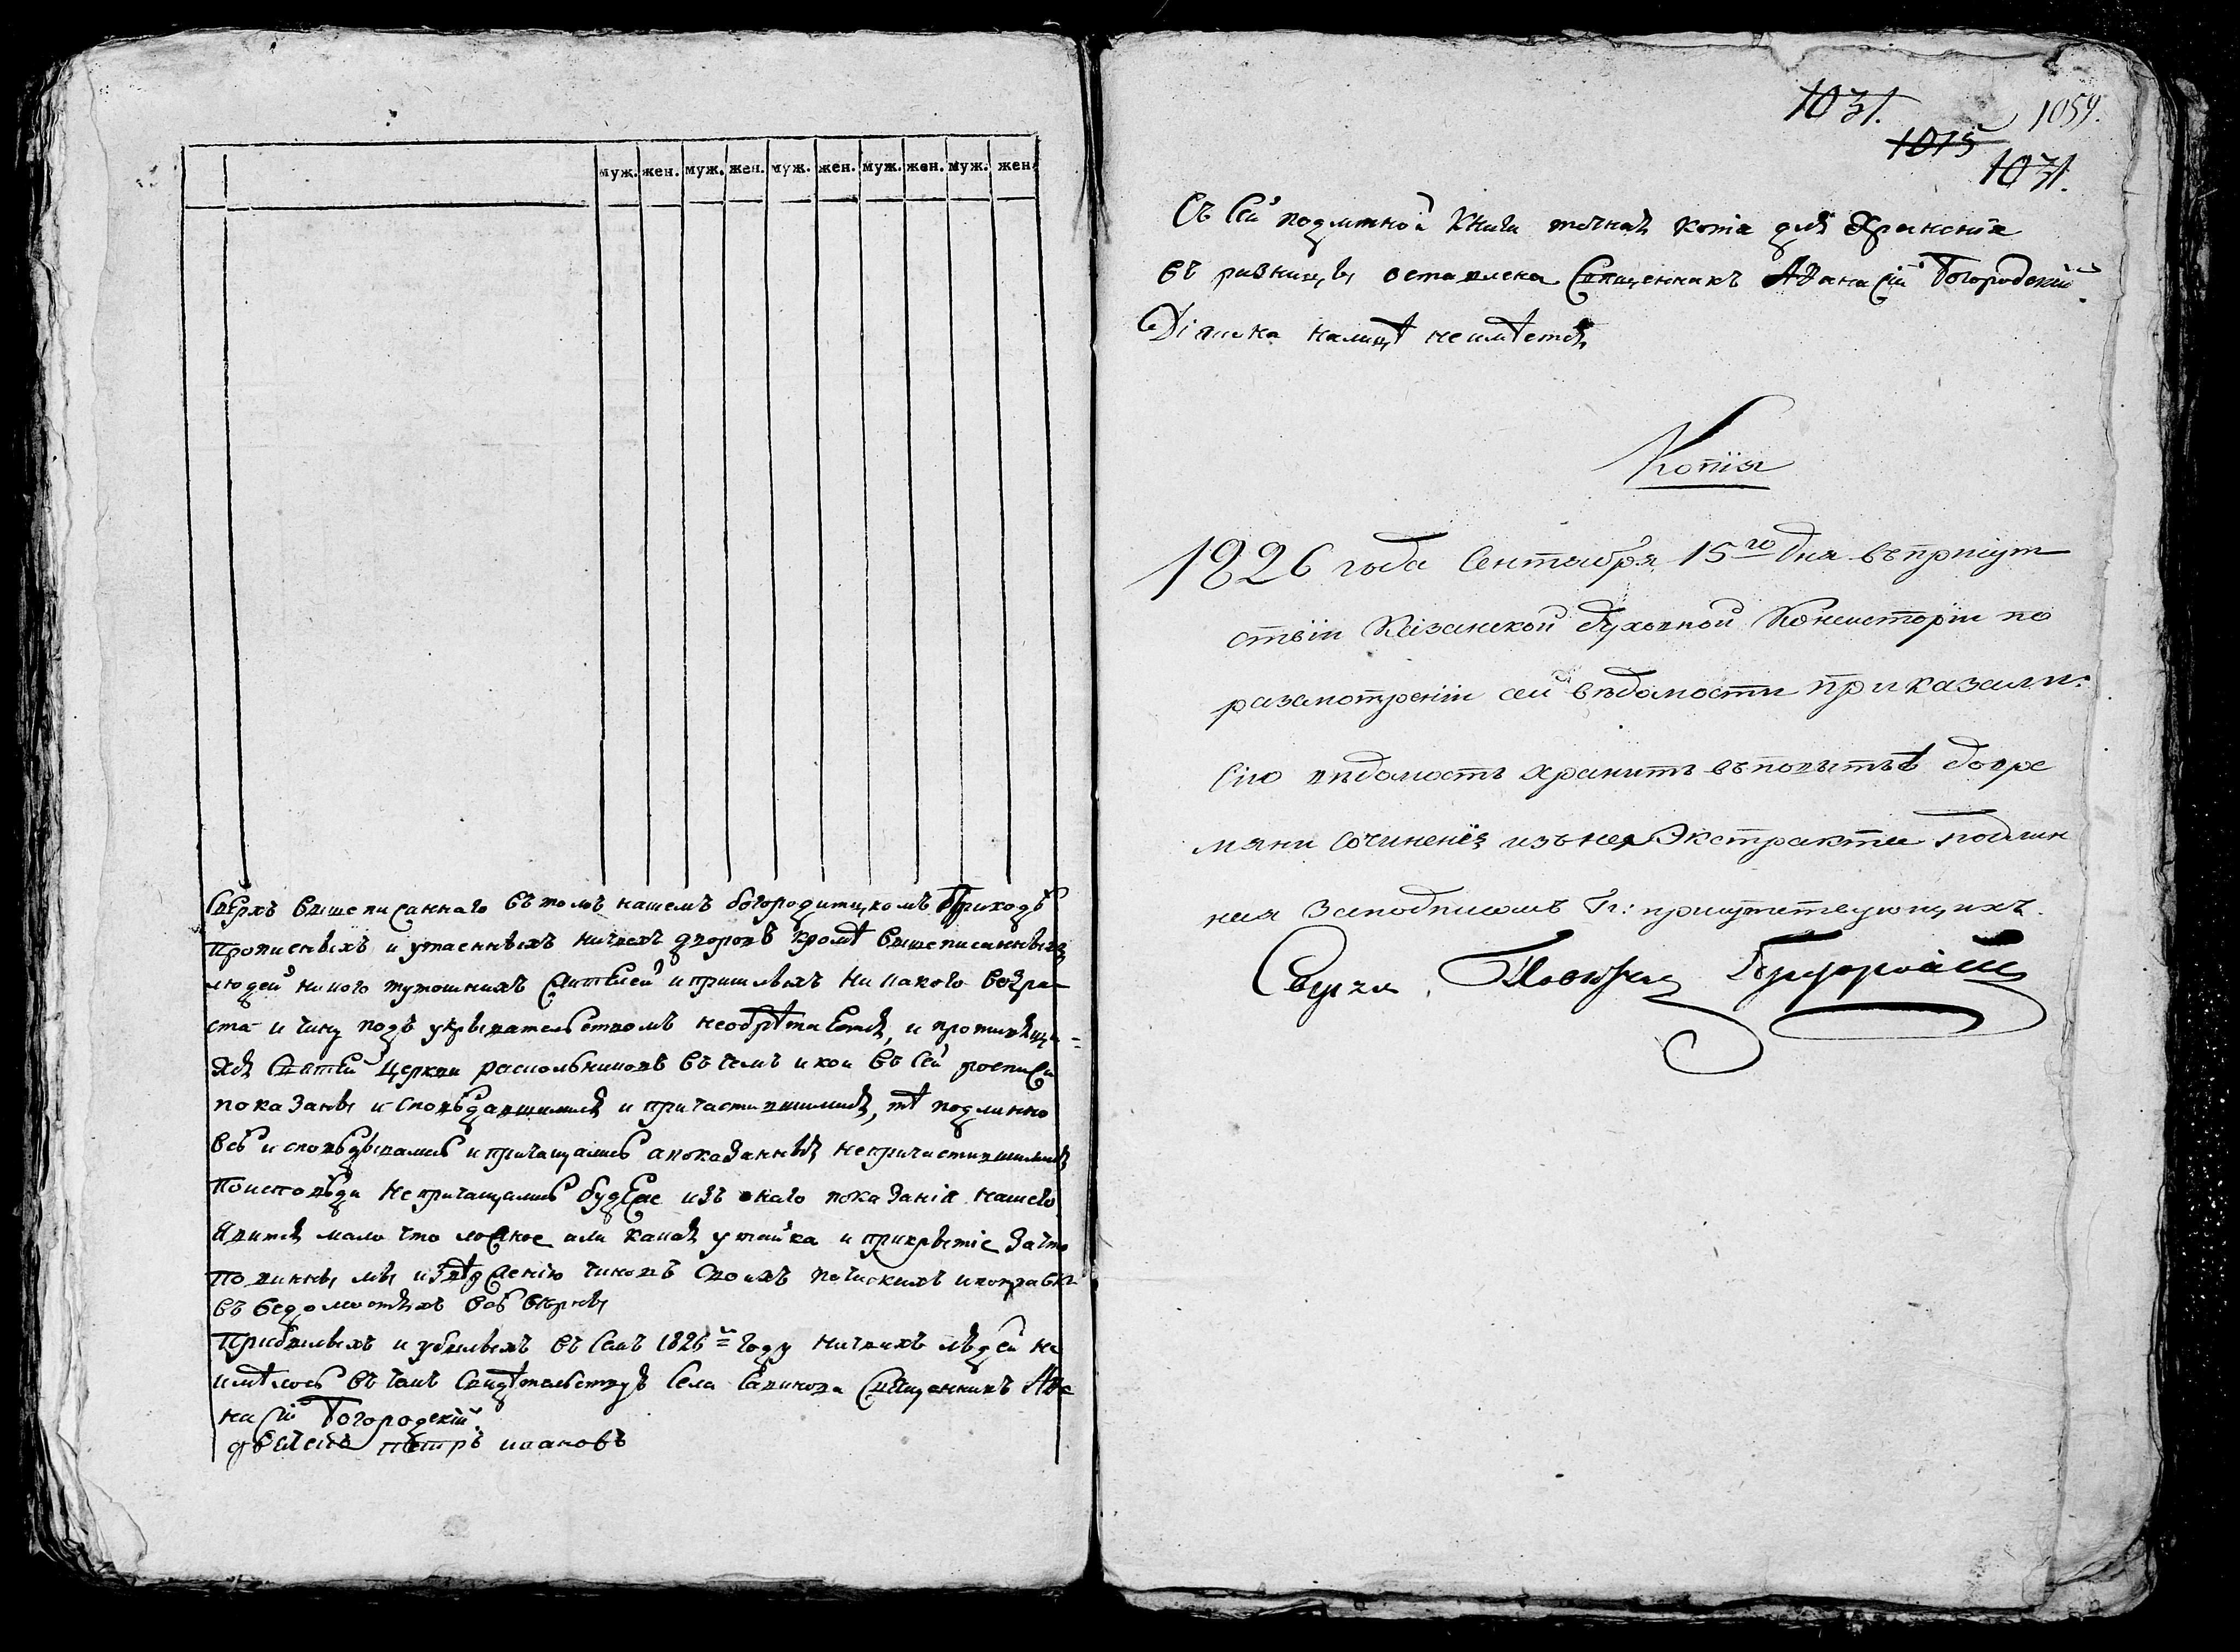 муж. жен. муж. жен. муж. жен. муж. жен. муж. жен.
Сверхъ вышеписаннаго въ томъ нашемъ богородитцкомъ приходѣ
прописныхъ и утаенныхъ ничьихъ дворовъ кромѣ вышеписанныхъ
людей никого тутошнихъ жителей и пришлыхъ никакого возра-
ста и чину подъ укрывательствомъ необрѣтается, и противящи=
хся святей церкви раскольниковъ въ чемъ и кои въ сей росписи
показаны исповѣдавшимися и причастившимися, тѣ подлинно
всѣ исповѣдывались и причащались а показанныя непричастившимися
поисповѣди непричащались будЕже изъ онаго показанія нашего
явится мало что ложное или какая утайка и прикрытіе за что
повинны мы извѣржению чиновъ своихъ
въ ведомостяхъ всѣ вѣрны
Прибылыхъ и убылыхъ въ семъ 1826 году ничьихъ людей не
имѣлось въ чемъ свидѣтельствуетъ села священникъ Афа
насій Богородскій
петръ ивановъ
1031.
1015
1059.
1031.
Съ сей подлинной книги точная копія для храненія
въ ризницы оставлена священникъ Афанасій Богородскій.
Діячка налицѣ неимѣется
Копія
1826 года Сентября 15го дня въ присут
ствіи Казанской духовной Консисторіи по
разсмотреніи сей вѣдомости приказали:
Сію вѣдомость хранить въ повытьѣ до вре
мяни сочиненія изъ нея Экстракта подлин
ная Заподписомъ Гг: присутствующихъ.